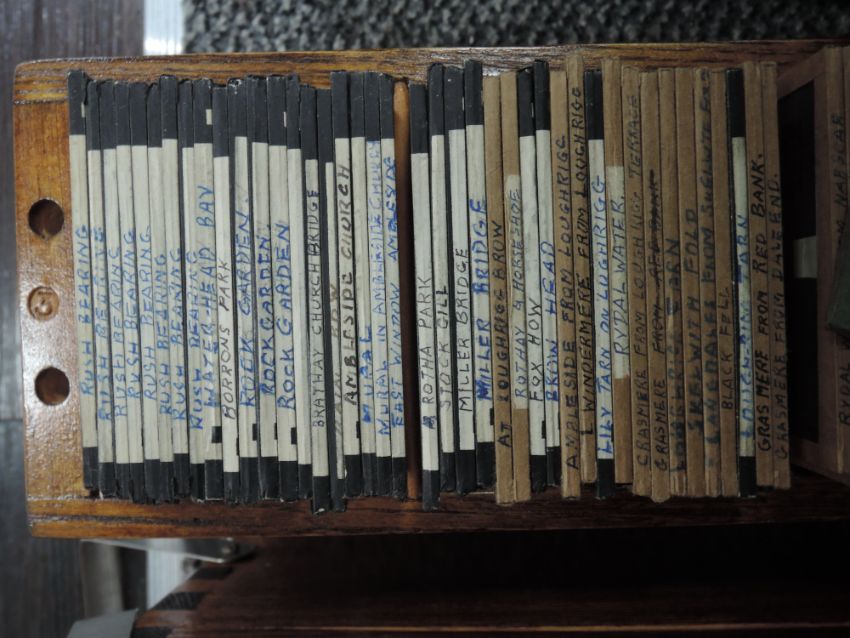 RUSH BEARING
RUSH BEARING
RUSH BEARING
RUSH BEARING
RUSH BEARING
RUSH BEARING
RUSH BEARING
RUSH BEARING
WATER HEAD BAY
BORRONS PARK
ROCK GARDEN
ROCK GARDEN
ROCK GARDEN
BRATHAY CHURCH BRIDGE
AMBLESIDE CHURCH
MURAL
MURAL IN AMBLESIDE CHURCH
EAST WINDOW AMBLESIDE
ROTHA PARK
STOCK GILL
MILLER BRIDGE
MILLER BRIDGE
AT LOUGHRIGG BROW
ROTHAY & HORSESHOE
FOX HOW
BROW HEAD
AMBLESIDE FROM LOUGHRIGG
WINDERMERE FROM LOUGHRIGG
LILY TARN ON LOUGHRIGG
RYDAL WATER
GRASMERE FROM LOUGHRIGG TERRACE
GRASMERE FROM RED BANK
TARN
SKELWITH FOLD
LANGDALES FROM SKELWITH FOLD
BLACK FELL
TARN
GRASMERE FROM RED BANK.
GRASMERE FROM DALE END.